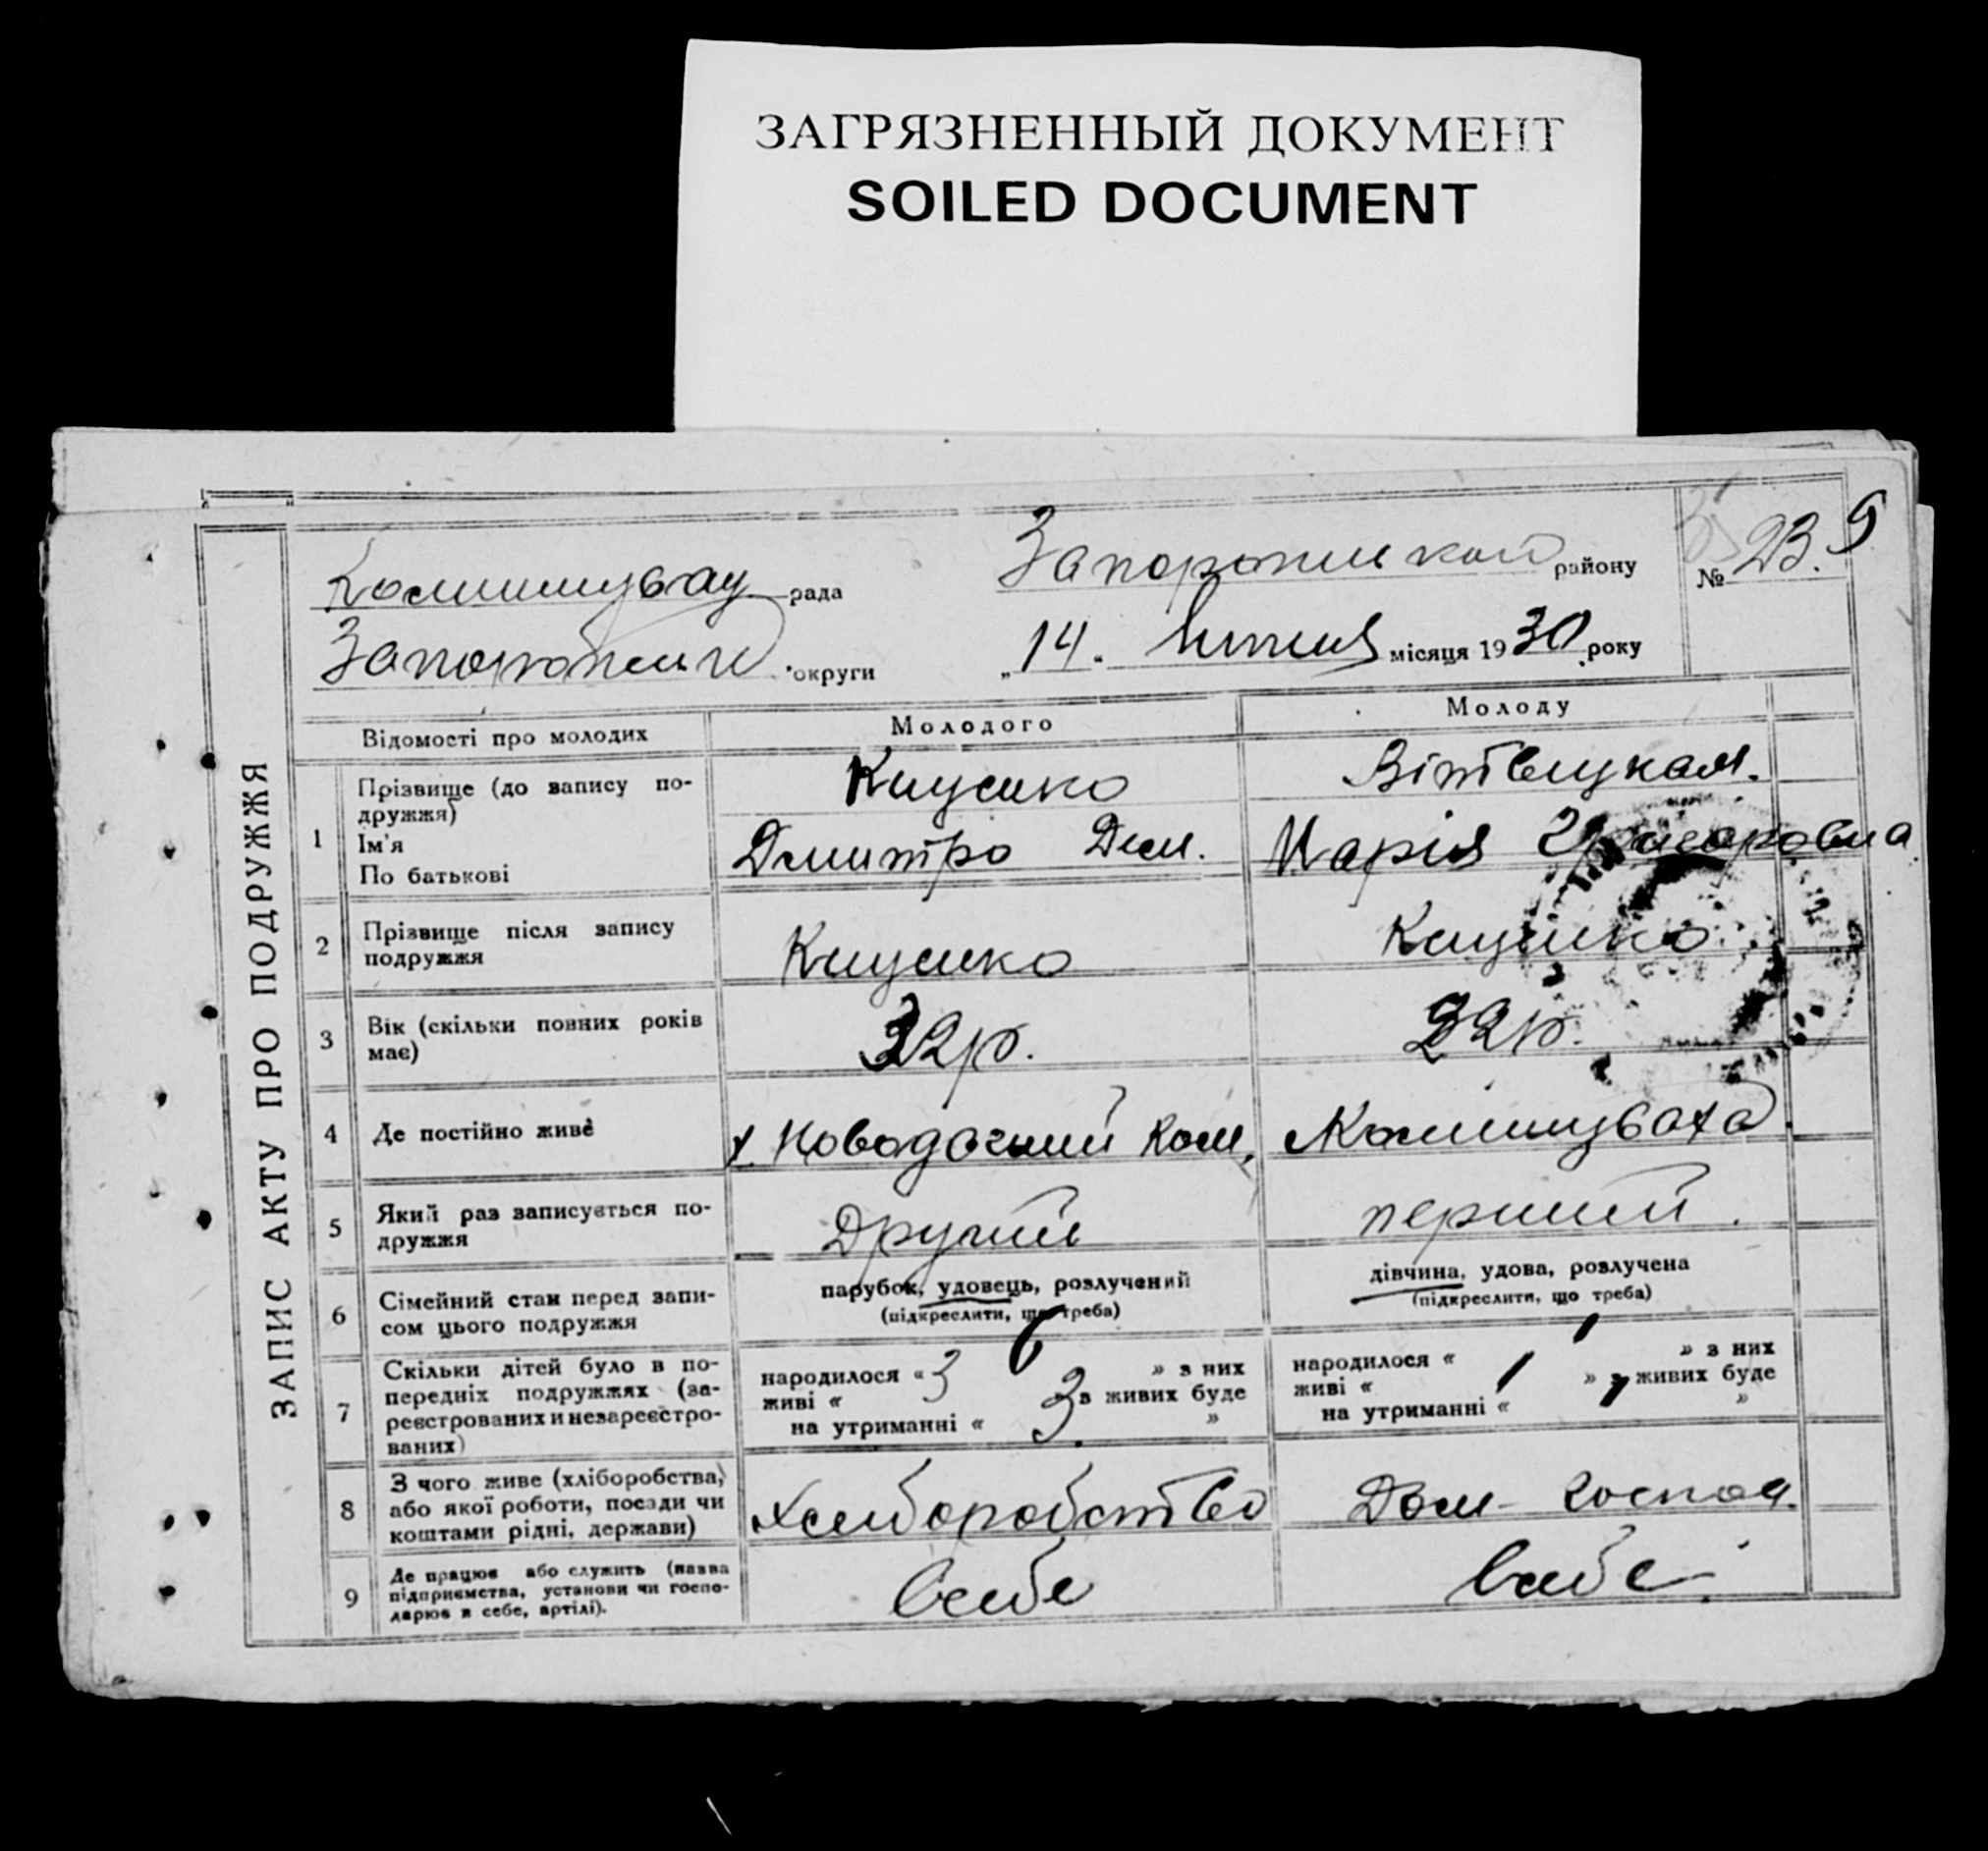 ЗАГРЯЗНЕННЫЙ ДОКУМЕНТ
SOILED DOCUMENT
ЗАПИС АКТУ ПРО ПОДРУЖЖЯ
Комишувах рада
району
№ 23. 9
округи
„14. липня місяця 1930 року
Відомості про молодих
Молодого
Молоду
1
Прізвище (до запису подружжя)
Ім'я
По батькові
Кищенко
Дмитро Дем.
Вітвицкая.
Марія Григоровна
2
Прізвище після запису
подружжя
Кищенко
Кищенко
3
Вік (скільки повних років
має)
32р.
22р.
4
Де постійно живе
х. Новодачний Ком.
Комишуваха
5
Який раз записується по-
дружжя
Другий
перший.
6
Сімейний стан перед запи-
сом цього подружжя
парубок, удовець, розлучений
(підкреслити, що треба)
дівчина, удова, розлучена
(підкреслити, що треба)
7
Скільки дітей було в по-
передніх подружжях (за-
реєстрованих и незареєстро-
ваних)
народилося « 3 » з них
живі « 3 з живих буде
на утриманні « »
народилося « » з них
живі « » з живих буде
на утриманні « »
8
З чого живе (хліборобства,
або якої роботи, посади чи
коштами рідні, держави)
Хліборобство
Дом- господ.
9
Де працює або служить (назва
підприємства, установи чи госпо-
дарює в себе, артілі).
всебе
всебе